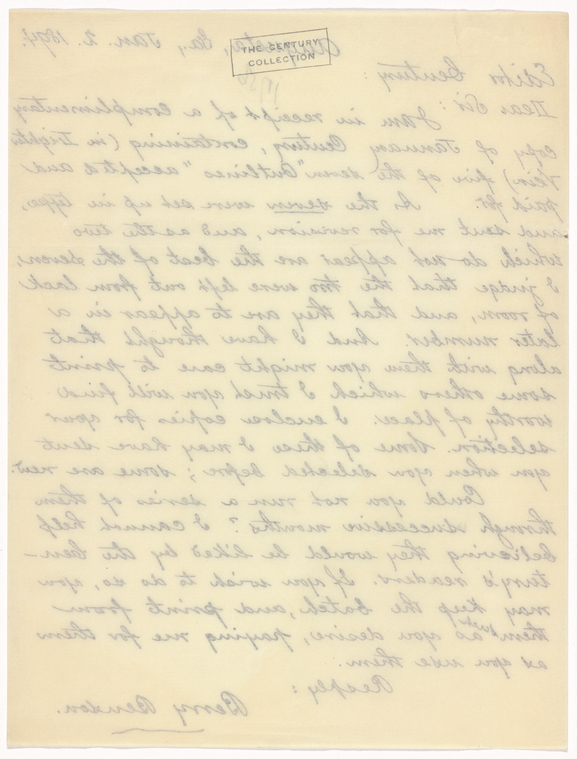 Augusta, Ga., Jan. 2. 1894.
THE CENTURY
COLLECTION
Editor Century:
Dear Sir:
I am in receipt of a complimentary
copy of January Century, containing (in Lighter
Vein) five of the seven "Outlines" accepted and
paid for. As the seven were set up in type,
and sent me for revision, and as the two
which do not appear are the best of the seven,
I judge that the two were left out from lack
of room, and that they are to appear in a
later number. And I have thought that
along with them you might care to print
some others which I trust you will find
worthy of place. I enclose copies for your
selection. Some of these I may have sent
you when you selected before; some are new.
Could you not run a series of them
through successive months? I cannot help
believing they would be liked by the Cen-
tury's readers. If you wish to do so, you
may keep the batch, and print from
them as you desire, paying me for them
as you use them.
Resply:
Berry Benson.